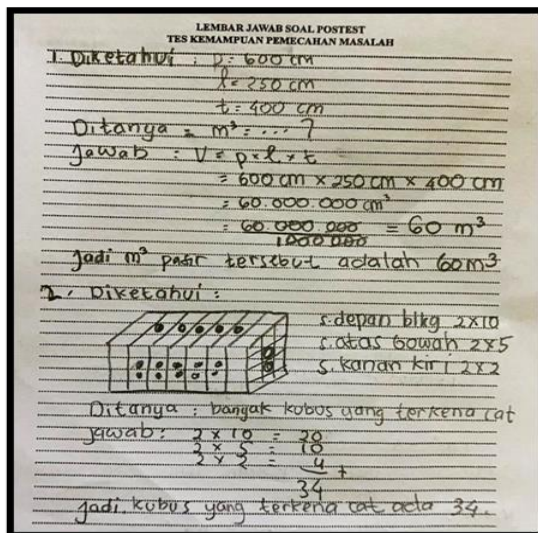 LEMBAR JAWAB SOAL POSTEST
TES KEMAMPUAN PEMECAHAN MASALAH
1. Diketahui : p = 600 cm
l = 250 cm
t = 400 cm
Ditanya = m³ = .... ?
Jawab : V = p × l × t
= 600 cm × 250 cm × 400 cm
= 60.000.000 cm³
= 60.000.000 / 1000 000 = 60 m³
Jadi m³ pasir tersebut adalah 60m3
2. Diketahui :
s.depan blkg 2×10
s.atas bawah 2×5
s. kanan kiri 2×2
Ditanya : banyak kubus yang terkena cat
jawab : 2 × 10 = 20
2 × 5 = 10
2 × 2 = 4 +
34
jadi kubus yang terkena cat ada 34.